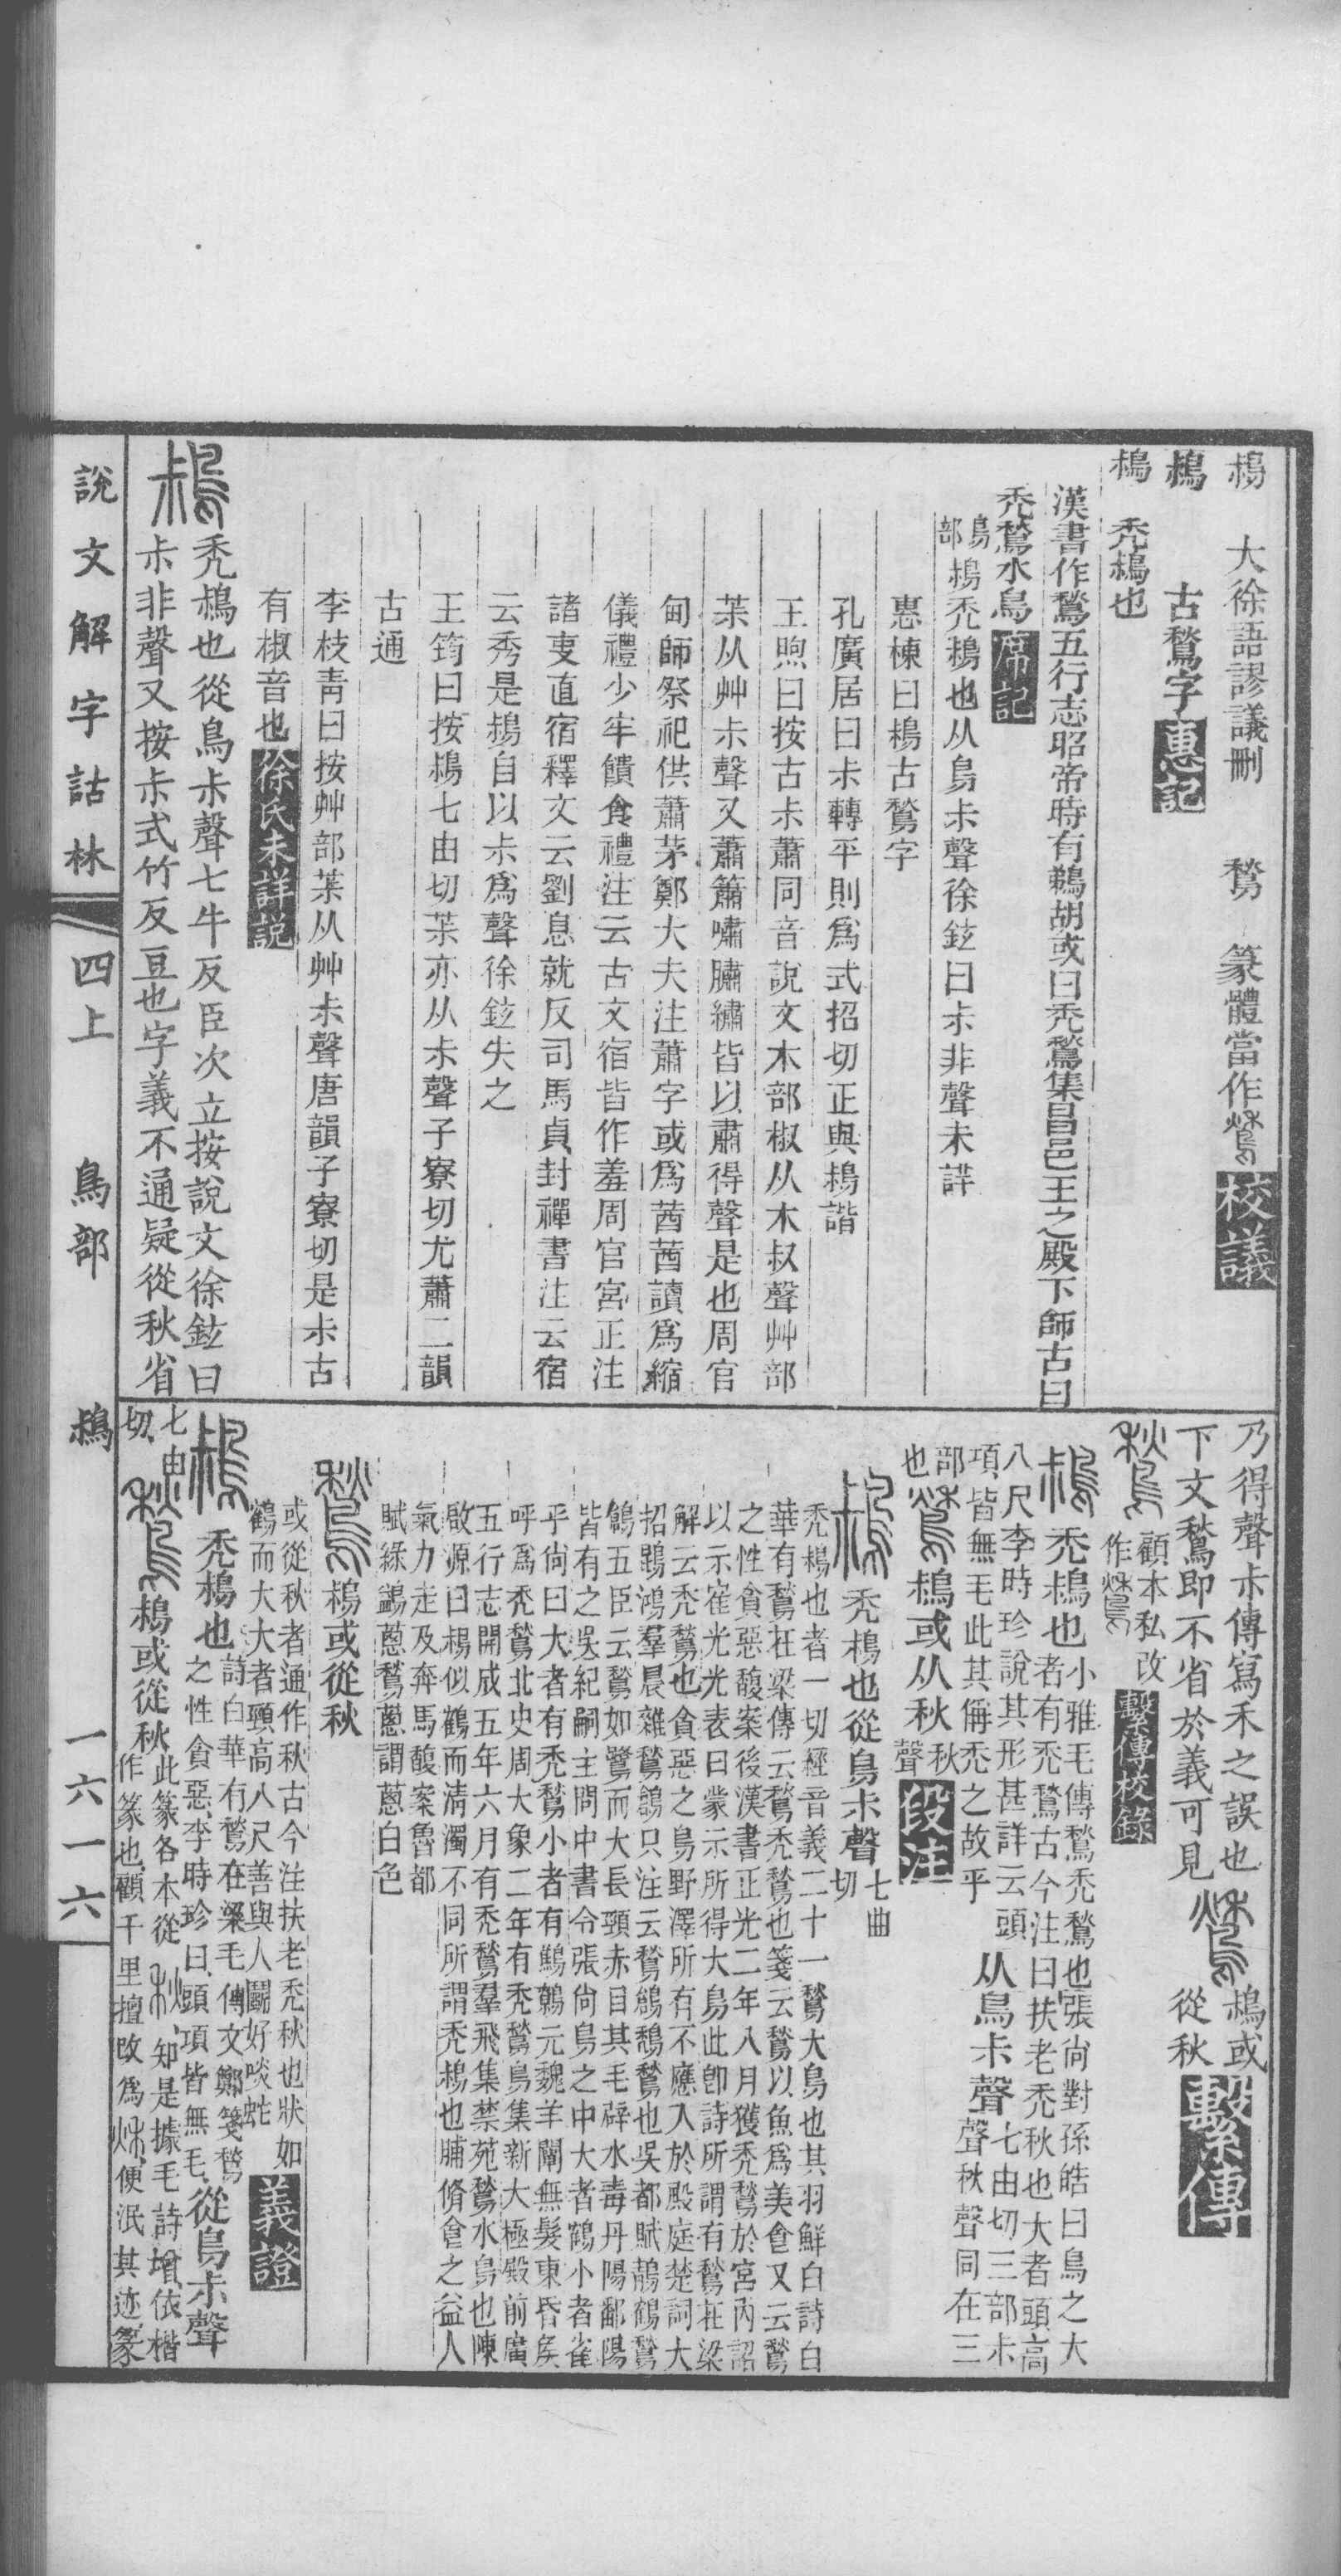 䳓　大徐語謬議刪　鶖　篆體當作𪆗校議
䳓　古鶖字惠記
䳓　禿䳓也
漢書作鶖五行志昭帝時有鵜胡或曰禿鶖集昌邑王之殿下師古曰
禿鶖水鳥席記
鳥部䳓禿䳓也从鳥尗聲徐鉉曰尗非聲未詳
惠棟曰䳓古鶖字
孔廣居曰尗轉平則爲式招切正與䳓諧
王煦曰按古尗蕭同音說文木部椒从木叔聲艸部
茮从艸尗聲又蕭簫嘯膓繡皆以肅得聲是也周官
甸師祭祀供蕭茅鄭大夫注蕭字或爲茜茜讀爲縮
儀禮少牢饋食禮注云古文宿皆作羞周官宮正注
諸吏直宿釋文云劉息就反司馬貞封禪書注云宿
云秀是䳓自以尗爲聲徐鉉失之
王筠曰按䳓七由切茮亦从尗聲子寮切尤蕭二韻
古通
李枝青曰按艸部茮从艸尗聲唐韻子寮切是尗古
有椒音也徐氏未詳說
䳓禿䳓也從鳥尗聲七牛反臣次立按說文徐鉉曰
尗非聲又按尗式竹反豆也字義不通疑從秋省
乃得聲尗傳寫禾之誤也
下文鶖即不省於義可見　鶖䳓或從秋繫傳
鶖顧本私改作𪆗繫傳校錄
䳓禿䳓也小雅毛傳鶖禿鶖也張尙對孫皓曰鳥之大
者有禿鶖古今注曰扶老禿秋也大者頭高
八尺李時珍說其形甚詳云頭
項皆無毛此其偁禿之故乎从鳥尗聲七由切三部尗
聲秋聲同在三
部也鶖䳓或从秋秋聲段注
䳓禿䳓也從鳥尗聲七曲切
禿䳓也者一切經音義二十一鶖大鳥也其羽鮮白詩白
華有鶖在梁傳云鶖禿鶖也箋云鶖以魚爲美食又云鶖
之性貪惡馥案後漢書正光二年八月獲禿鶖於宮內詔
以示崔光光表曰蒙示所得大鳥此卽詩所謂有鶖在梁
解云禿鶖也貪惡之鳥野澤所有不應入於殿庭楚詞大
招鵾鴻羣晨雜鶖鶬只注云鶖鶬鶖也吳都賦鶄鶴鶖
鶬五臣云鶖如鷺而大長頸赤目其毛辟水毒丹陽鄱陽
皆有之吳紀嗣主問中書令張尙鳥之中大者鶴小者雀
乎尙曰大者有禿鶖小者有鷦鷯元魏羊闡無髮東昏矦
呼爲禿鶖北史周大象二年有禿鶖鳥集新大極殿前廣
五行志開成五年六月有禿鶖羣飛集禁苑鶖水鳥也陳
啟源曰䳓似鶴而清濁不同所謂禿䳓也脯脩食之益人
氣力走及奔馬馥案魯都
賦綠鷁蔥鶖蔥謂蔥白色
鶖䳓或從秋
或從秋者通作秋古今注扶老禿秋也狀如
鶴而大大者頸高八尺善與人鬭好啖蛇義證
䳓禿䳓也詩白華有鶖在梁毛傳文鄭箋鶖
之性貪惡李時珍曰頭項皆無毛從鳥尗聲
七由切鶖䳓或從秋此篆各本從秋知是據毛詩增依楷
作篆也顧千里擅改爲𥤚便泯其迹篆
說文解字詁林　四上　鳥部　䳓　一六一六